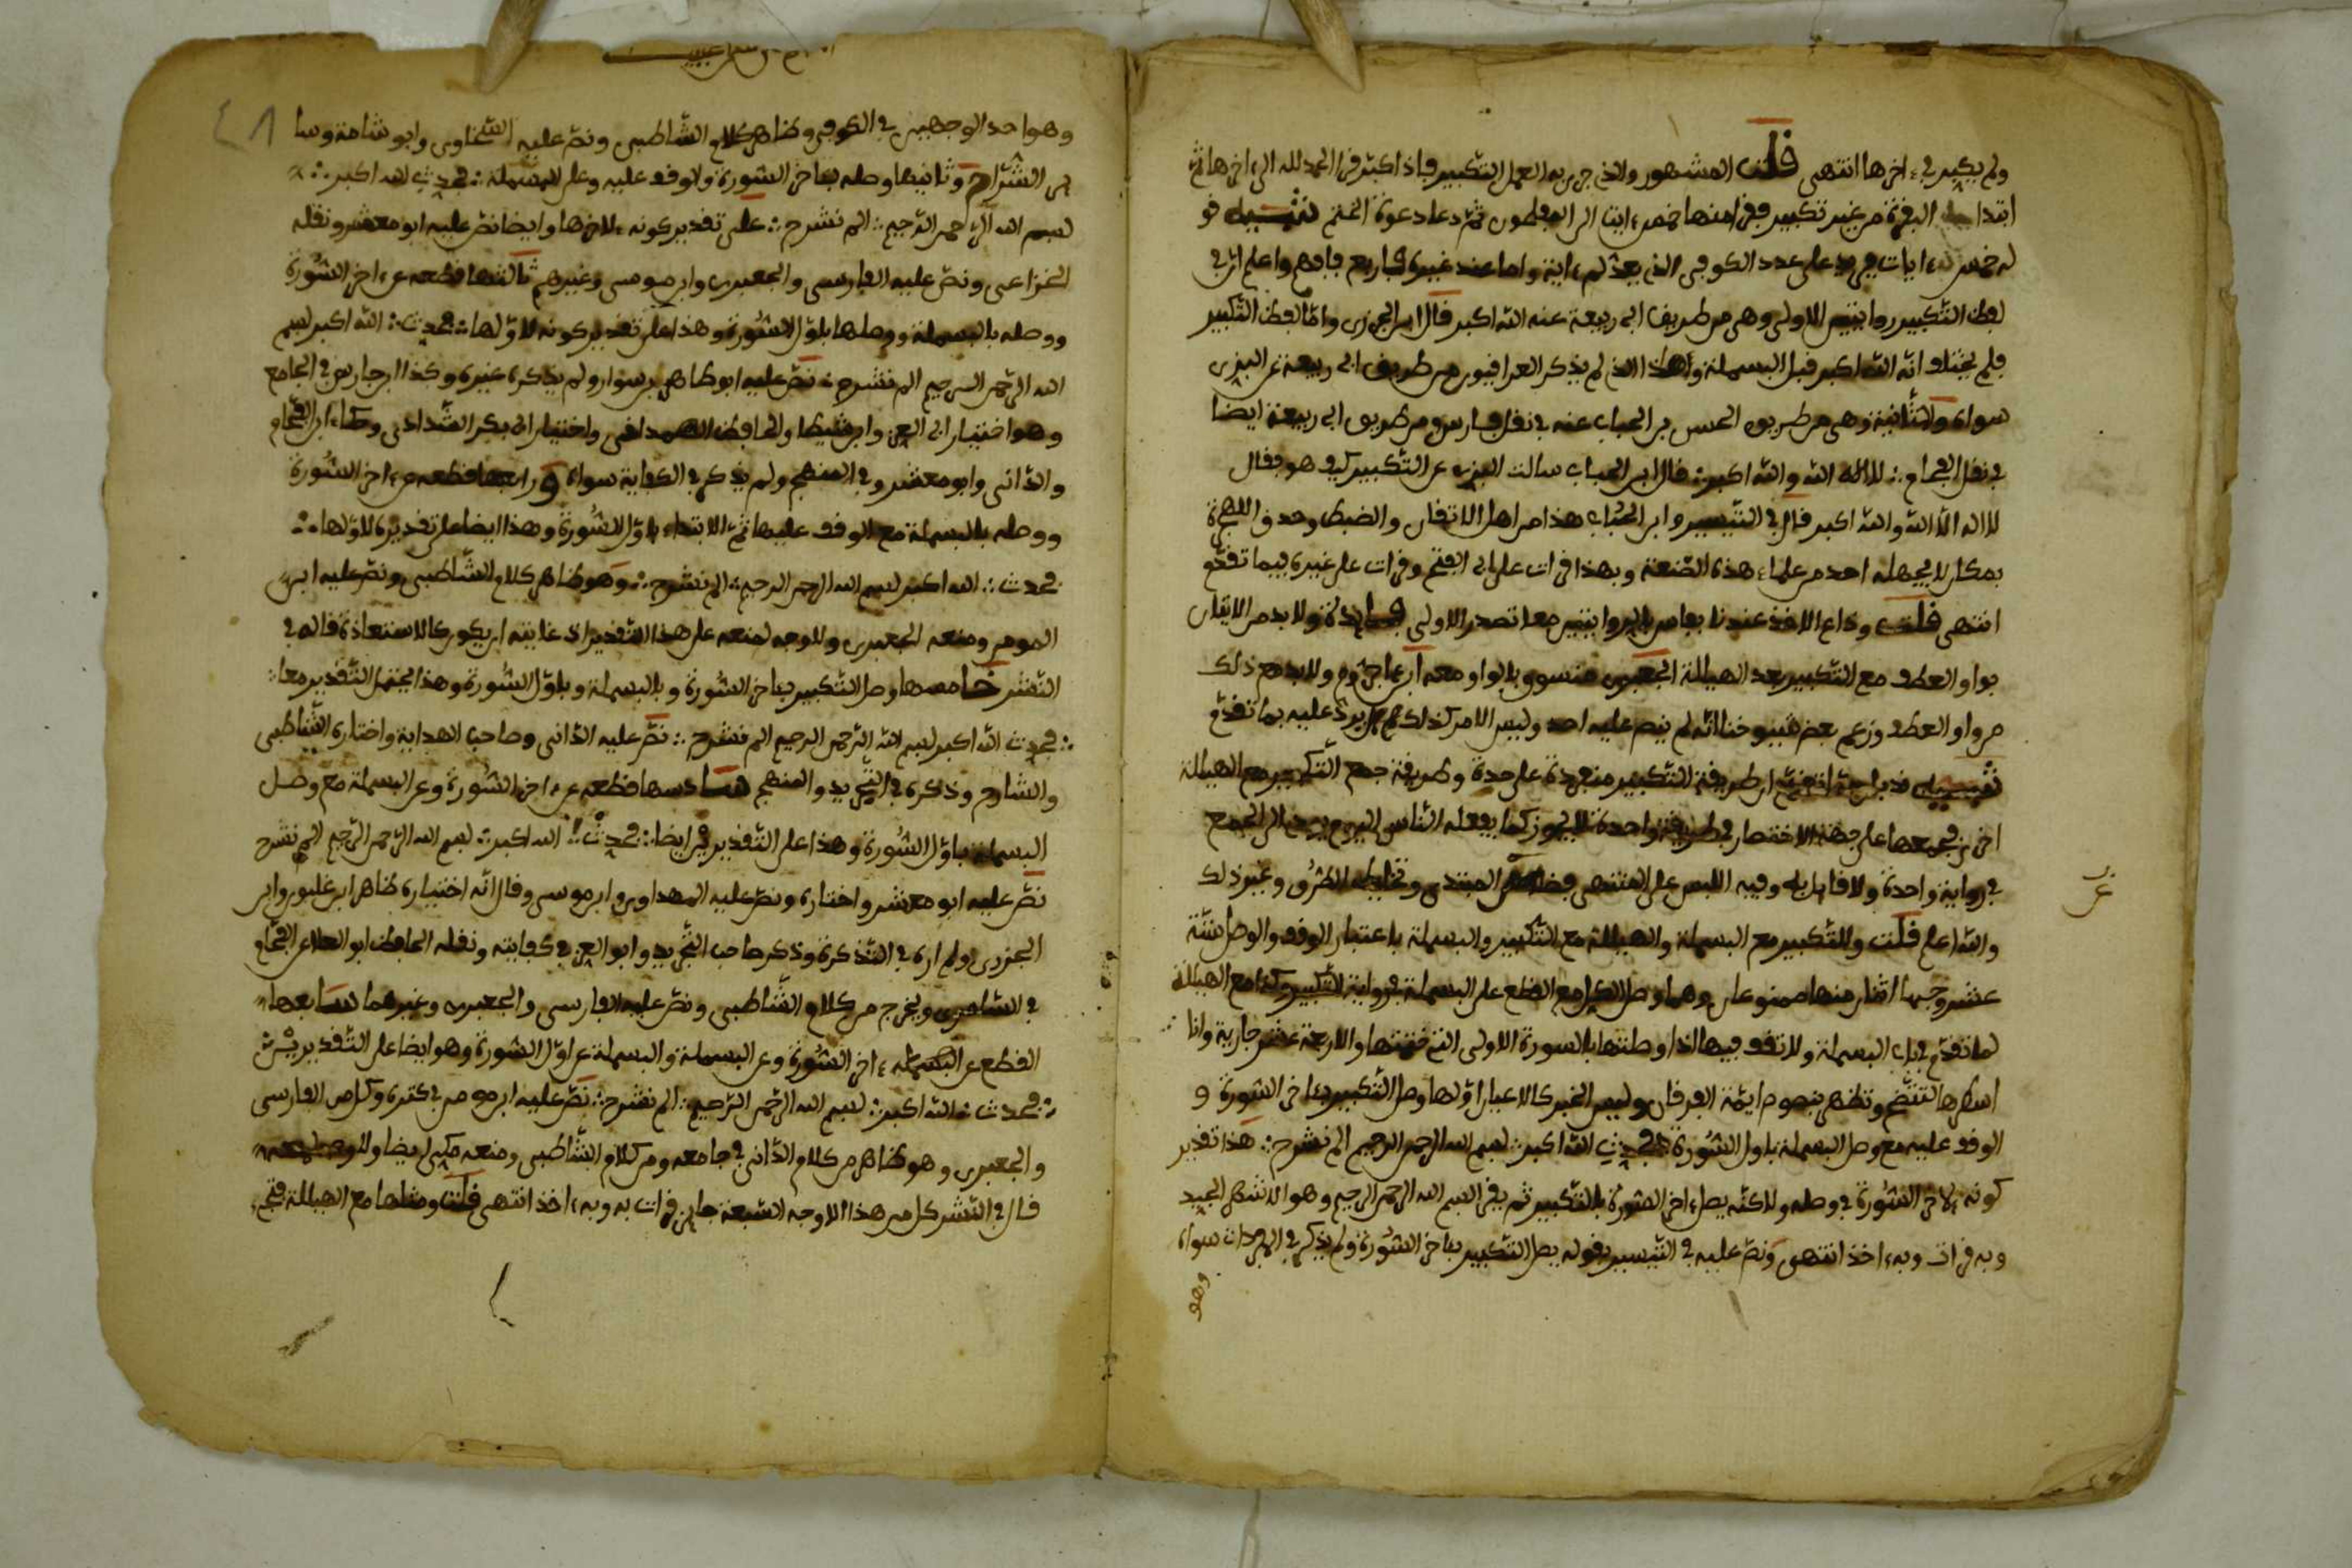 ولم يكبر في ءاخرها انتهى قلت المشهور والذي جرى به العمل التكبير فإذا كبر قرأ الحمد لله الى ءاخرها ثم
ابتدا البقرة من غير تكبير فقرأ منها خمس ءايات الى المفلحون ثم دعا دعوة الختم تنبيه قو
له خمس ءايات جرى على عدد الكوفي الذي يعد الم ءاية واما عند غيره فاربع فافهم واعلم ان في
لفظ التكبير روايتين الاولى وهي من طريق ابي ربيعة عنه الله اكبر قال ابن الجزري واما لفظ التكبير
فلم يختلف انه الله اكبر قبل البسملة وهذا الذي لم يذكر العراقيون من طريق ابي ربيعة عن البزي
سواه والثانية وهي من طريق الحسن بن الحباب عنه في نقل فارس ومن طريق ابي ربيعة ايضا
في نقل الفحام لا اله الا الله والله اكبر قال ابن الحباب سالت البزي عن التكبير كيف هو فقال
لا اله الا الله والله اكبر قال في التيسير وابن الحباب هذا من اهل الاتقان والضبط وصدق اللهجة
بمكان لا يجهله احد من علماء هذه الصنعة وبهذا قرات على ابي الفتح وقرات على غيره بما تقدم
انتهى قلت وذاع الاخذ عندنا بفاس بالروايتين معا تصدر الاولى ولا بد من الاتيان
بواو العطف مع التكبير بعد الهيللة الجعبري منسوق بالواو ومعه ابن ءاجروم ولا بد مع ذلك
من واو العطف وزعم بعض شيوخنا انه لم ينص عليه احد وليس الامر كذلك بل يرد عليه بما تقدم
تنبيه قد ان طريقة التكبير منفردة على حدة وطريقة جمع التكبير مع الهيللة
اخرى فجمعها على جهة الاختصار في طريقة واحدة لا يجوز كما يفعله الناس اليوم الجمع
في رواية واحدة ولا قايل به وفيه اللبس على المنتهي فضلا عن المبتدي وتخليط الطرق وغير ذلك
والله اعلم قلت وللتكبير مع البسملة والهيللة مع التكبير والبسملة باعتبار الوقف والوصل ستة
عشر وجها اثنان منها ممنوعان وهما وصل الكل مع القطع على البسملة في رواية التكبير وكذا مع الهيللة
لما تقدم في باب البسملة ولا تقف فيها اذا وصلتها بالسورة الاولى التي ختمتها والاربعة عشر جارية وانا
اسطرها لتتضح وتظهر بنصوص ايمة الفرقان وليس الخبر كالاعيان اولها وصل التكبير بئاخر السورة و
الوقف عليه مع وصل البسملة باول السورة فحدث الله اكبر بسم الله الرحمن الرحيم الم نشرح هذا تقدير
كونه لاخر السورة في وصله ولاكنه يصل ءاخر السورة بالتكبير ثم يقرا بسم الله الرحمن الرحيم وهو الاشهر الجيد
وبه قرات وبه ءاخذ انتهى ونص عليه في التيسير بقوله يصل التكبير بئاخر السورة ولم يذكر في المفردات سواه
وهو
وهو احد الوجهين في الكوفي وظاهر كلام الشاطبي ونص عليه السخاوي وابو شامة وسا
ير الشراح وثانيها وصله بئاخر السورة والوقف عليه وعلى البسملة فحدث الله اكبر
بسم الله الرحمن الرحيم الم نشرح على تقدير كونه لاخرها وايضا نص عليه ابو معشر ونقله
الخزاعي ونص عليه الفارسي والجعبري وابن مومن وغيرهم ثالثها قطعه عن ءاخر السورة
ووصله بالبسملة ووصلها باول السورة وهذا على تقدير كونه لاولها فحدث الله اكبر بسم
الله الرحمن الرحيم الم نشرح نص عليه ابو طاهر بن سوار ولم يذكر غيره وكذا ابن فارس في الجامع
وهو اختيار ابي العز وابن شيطا والحافظ الهمداني واختيار ابي بكر الشذاءي وحكاه ابن الفحام
والداني وابو معشر وفي المنهج ولم يذكر في الكفاية سواه ورابعها قطعه عن ءاخر السورة
ووصله بالبسملة مع الوقف عليها ثم الابتداء باول السورة وهذا ايضا على تقديره لاولها
فحدث الله اكبر بسم الله الرحمن الرحيم الم نشرح وهو ظاهر كلام الشاطبي ونص عليه ابن
المومن ومنعه الجعبري ولا وجه لمنعه على هذا التقدير اذ غايته ان يكون كالاستعاذة قاله في
النشر خامسها وصل التكبير بئاخر السورة وبالبسملة وباول السورة وهذا يحتمل التقدير معا
فحدث الله اكبر بسم الله الرحمن الرحيم الم نشرح نص عليه الداني وصاحب الهداية واختاره الشاطبي
والشارح وذكره في التجريد والمنهج سادسها قطعه عن ءاخر السورة وعن البسملة مع وصل
البسملة باول السورة وهذا على التقديرين ايضا فحدث الله اكبر بسم الله الرحمن الرحيم الم نشرح
نص عليه ابو معشر واختاره ونص عليه المهداوي وابن مومن وقال انه اختيار طاهر ابن غلبون وابن
الجزري ولم اره في التذكرة وذكر صاحب التجريد وابو العز في كفايته ونقله الحافظ ابو العلا عن الفحام
في الشامي ويخرج من كلام الشاطبي ونص عليه الفارسي والجعبري وغيرهما سابعها
القطع عن ءاخر السورة وعن البسملة والبسملة عن اول السورة وهو ايضا على التقديرين
فحدث الله اكبر بسم الله الرحمن الرحيم الم نشرح نص عليه ابن مومن في كنزه وكل من الفارسي
والجعبري وهو ظاهر من كلام الداني في جامعه ومن كلام الشاطبي ومنعه مكي ايضا ولا وجه لمنعه
قال في النشر كل من هذا الاوجه السبعة جايز قرات به وبه ءاخذ انتهى قلت ومثلها مع الهيللة فتجيء